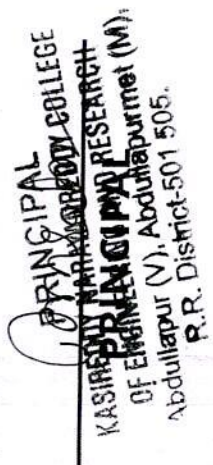 PRINCIPAL
KASIREDDY NARAYANREDDY COLLEGE
OF ENGINEERING AND RESEARCH
PRINCIPAL
Abdullapur (V), Abdullapurmet (M),
R.R. District-501 505.